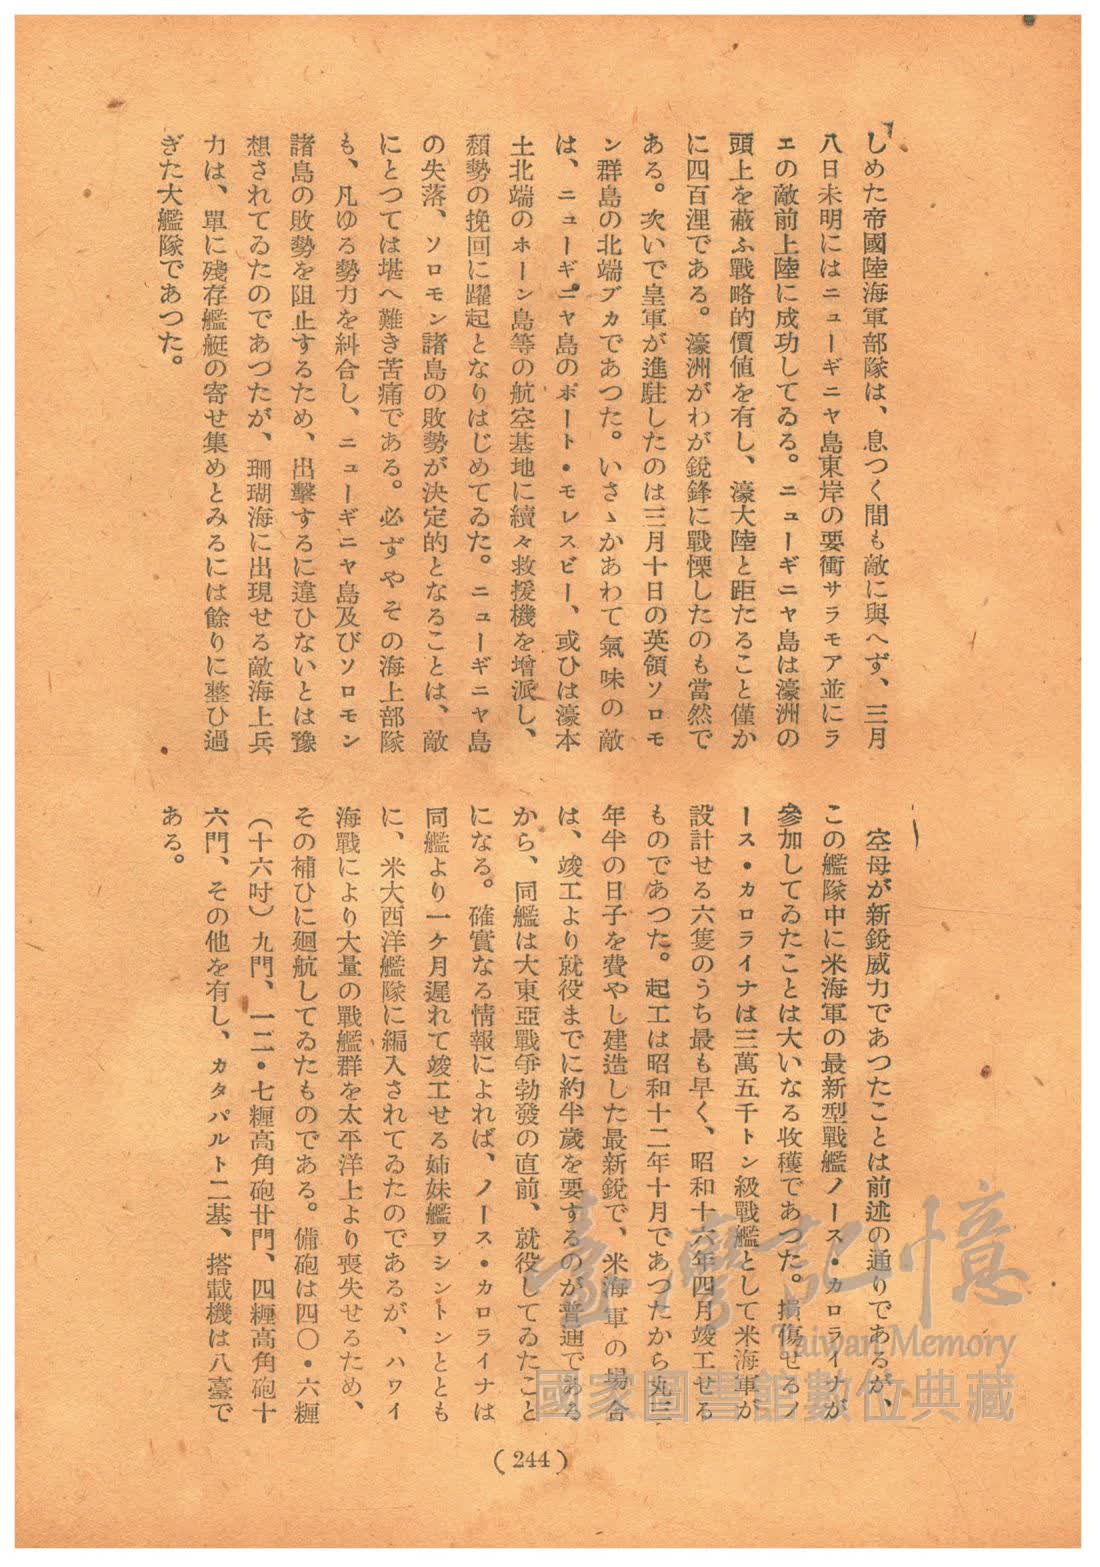 しめた帝國陸海軍部隊は、息つく間も敵に與へず、三月
八日未明にはニューギニヤ島東岸の要衝サラモア並にラ
エの敵前上陸に成功してゐる。ニューギニヤ島は濠洲の
頭上を蔽ふ戰略的價値を有し、濠大陸と距たること僅か
に四百浬である。濠洲がわが銳鋒に戰慄したのも當然で
ある。次いで皇軍が進駐したのは三月十日の英領ソロモ
ン群島の北端ブカであつた。いさゝかあわて氣味の敵
は、ニューギニヤ島のポート・モレスビー、或ひは濠本
土北端のホーン島等の航空基地に續々救援機を增派し、
頽勢の挽回に躍起となりはじめてゐた。ニューギニヤ島
の失落、ソロモン諸島の敗勢が決定的となることは、敵
にとつては堪へ難き苦痛である。必ずやその海上部隊
も、凡ゆる勢力を糾合し、ニューギニヤ島及びソロモン
諸島の敗勢を阻止するため、出擊するに違ひないとは豫
想されてゐたのであつたが、珊瑚海に出現せる敵海上兵
力は、單に殘存艦艇の寄せ集めとみるには餘りに整ひ過
ぎた大艦隊であつた。
空母が新銳威力であつたことは前述の通りであるが、
この艦隊中に米海軍の最新型戰艦ノース・カロライナが
參加してゐたことは大いなる收穫であつた。損傷せるノ
ース・カロライナは三萬五千トン級戰艦として米海軍が
設計せる六隻のうち最も早く、昭和十六年四月竣工せる
ものであつた。起工は昭和十二年十月であつたから丸三
年半の日子を費やし建造した最新銳で、米海軍の場合
は、竣工より就役までに約半歲を要するのが普通である
から、同艦は大東亞戰爭勃發の直前、就役してゐたこと
になる。確實なる情報によれば、ノース・カロライナは
同艦より一ケ月遲れて竣工せる姉妹艦ワシントンととも
に、米大西洋艦隊に編入されてゐたのであるが、ハワイ
海戰により大量の戰艦群を太平洋上より喪失せるため、
その補ひに廻航してゐたものである。備砲は四〇・六糎
(十六吋)九門、一二・七糎高角砲廿門、四糎高角砲十
六門、その他を有し、カタパルト二基、搭載機は八臺で
ある。
(244)
臺灣記憶
Taiwan Memory
國家圖書館數位典藏